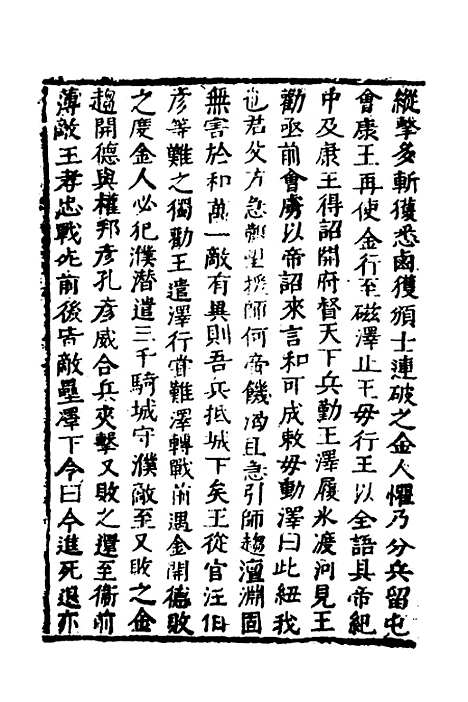 縱擊多斬獲悉鹵獲頒士連破之金人懼乃分兵留屯
會康王再使金行至磁澤止王毋行王以全語具帝紀
中及康王得詔開府督天下兵勤王澤履氷渡河見王
勸亟前會虜以帝詔來言和可成敕毋動澤曰此紐我
也君父方急觀望援師何啻饑渴且急引師趨澶淵固
無害於和萬一敵有異則吾兵抵城下矣王從官汪伯
彥等難之獨勸王遣澤行嘗難澤轉戰而前遇金開德敗
之度金人必犯濮潜遣三千騎城守濮敵至又敗之金
趨開德與權邦彥孔彥威合兵夾擊又敗之還至衞前
薄敵王孝忠戰死前後皆敵壘澤下令曰今進死退亦